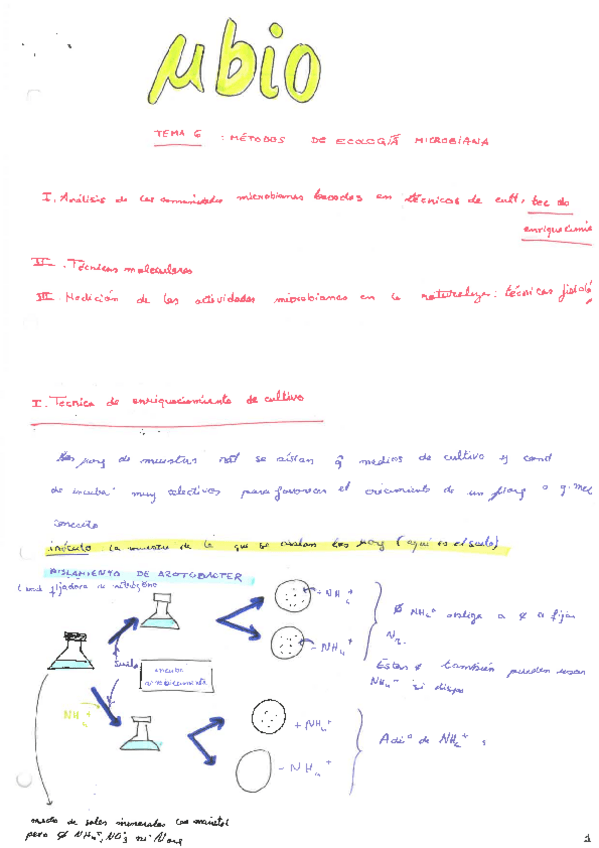 µbio
TEMA 6 : MÉTODOS DE ECOLOGÍA MICROBIANA
I. Análisis de las comunidades microbianas basados en técnicas de cult, tec de
enriquecimie
II. Técnicas moleculares
III. Medición de las actividades microbianas en la naturaleza: técnicas fisioló
I. Tecnica de enriqueciamiento de cultivo
Los µorg de muestras nat se aislan medios de cultivo y cond
de incuba muy selectivos para favorecer el crecimiento de un µorg o
concreto
inóculo: la muestra de la que se aislan los µorg (aquí es el suelo)
AISLAMIENTO DE AZOTOBACTER
fijadora de nitrógeno
+ NH4+
- NH4+
Ø NH4+ obliga a a fijar
N2.
Suelo
incuba
aerobicamente
Estas también pueden usar
NH4+ si dispo
NH4+
+ NH4+
- NH4+
Adiº de NH4+ s
medio de sales minerales
pero Ø NH4+, NO3- ni N org
1